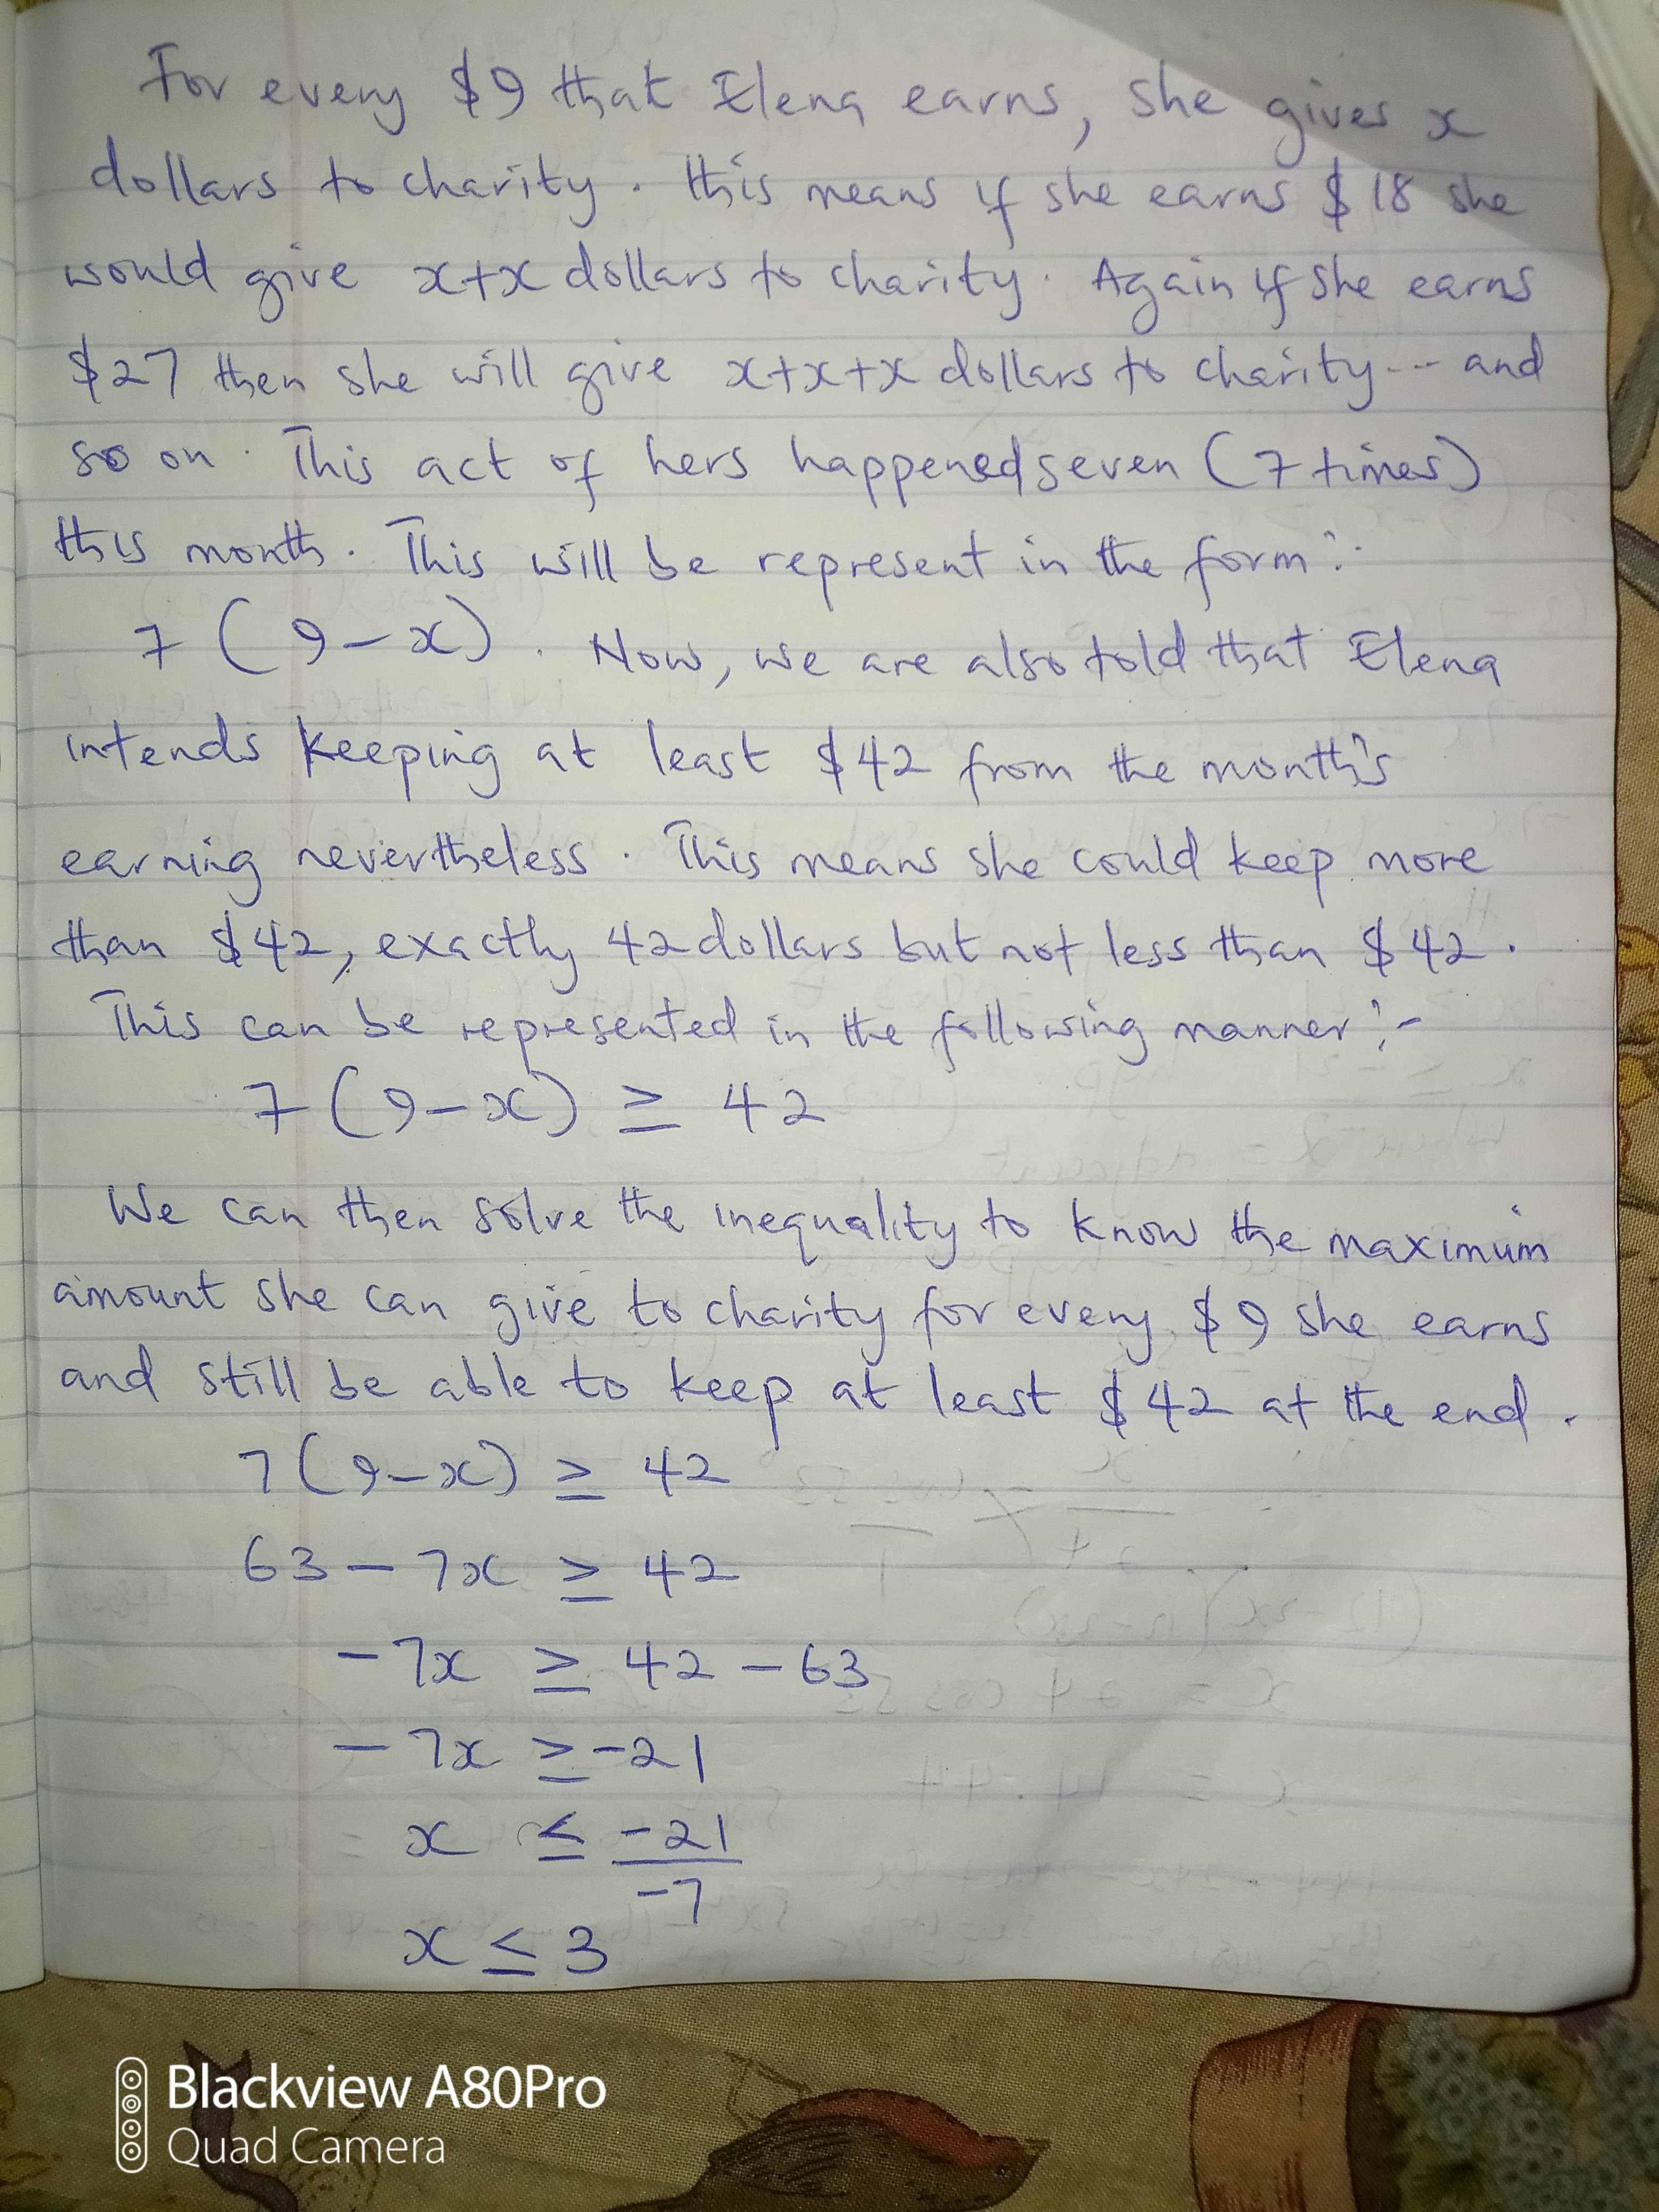 For every $9 that Elena earns, she gives x
dollars to charity. This means if she earns $18 she
would give x+x dollars to charity. Again if she earns
$27 then she will give x+x+x dollars to charity--- and
so on. This act of hers happened seven (7 times)
this month. This will be represent in the form:
7(9-x). Now, we are also told that Elena
intends keeping at least $42 from the month's
earning nevertheless. This means she could keep more
than $42, exactly 42 dollars but not less than $42.
This can be represented in the following manner:-
7(9-x) ≥ 42
We can then solve the inequality to know the maximum
amount she can give to charity for every $9 she earns
and still be able to keep at least $42 at the end.
7(9-x) ≥ 42
63-7x ≥ 42
-7x ≥ 42-63
-7x ≥ -21
x ≤ -21
-7
x ≤ 3
Blackview A80Pro
Quad Camera